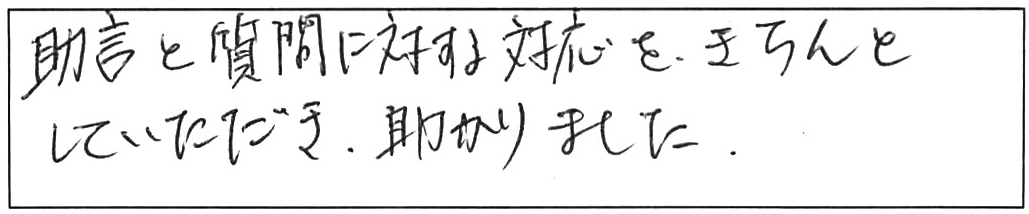 助言と質問に対する対応を、きちんと
していただき、助かりました。